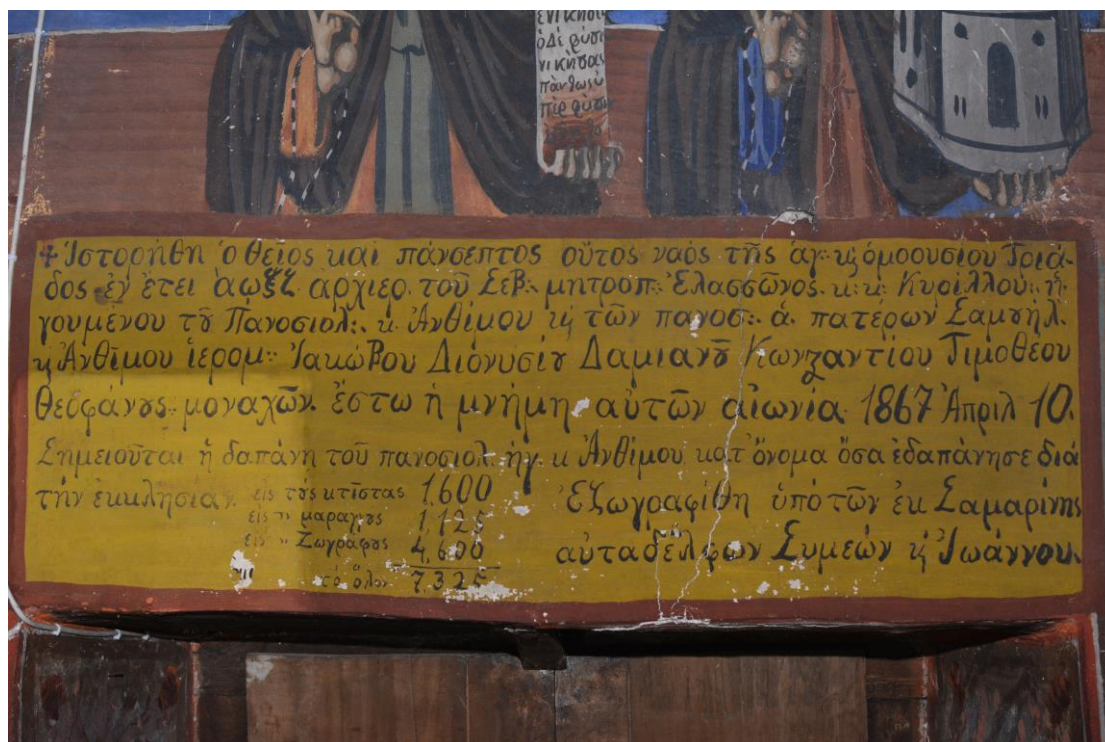 ἐνίκησε
ὁ δὲ φύσι
νικήσας
πάνθως ὑ
πὲρ φύσιν
+ Ἱστορήθη ὁ θεῖος καὶ πάνσεπτος οὗτος ναὸς τῆς ἁγ: κ̣ ὁμοουσίου Τριά-
δος ἐν ἔτει ᾳωξζ ἀρχιερ. τοῦ Σεβ: μητροπ: Ἐλασσῶνος κ: κ: Κυρίλλου: ἡ-
γουμένου τȣ͂ Πανοσιολ: κ. Ἀνθίμου κ̣ τῶν πανοσ: ἁ. πατέρων Σαμουὴλ.
κ̣ Ἀνθίμου ἱερομ: Ἰακώβου Διονυσίȣ Δαμιανȣ͂ Κωνϛαντίου Τιμοθέου
Θεοφάνȣς: μοναχῶν. ἔστω ἡ μνήμη αὐτῶν αἰωνία 1867 Ἀπριλ 10.
Σημειοῦται ἡ δαπάνη τοῦ πανοσιολ. ἡγ. κ Ἀνθίμου κατ' ὄνομα ὅσα ἐδαπάνησε διὰ
τὴν ἐκκλησίαν. εἰς τȣς κτίστας 1,600 Ἐζωγραφίθη ὑπὸ τῶν ἐκ Σαμαρίνης
εἰς " μαραγκȣς 1,125
εἰς " Ζωγράφȣς 4,600 αὐταδέλφων Συμεὼν κ̣ Ἰωάννου.
τὸ ὅλον 7,325